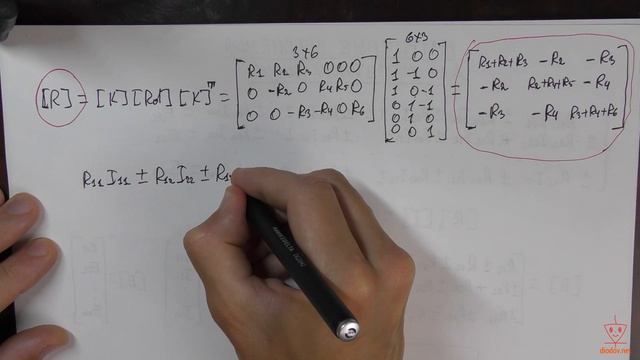 3×6
6×3
[R] = [K][Rd][K]ᵀ = [R1 R2 R3 0 0 0
0 -R2 0 R4 R5 0
0 0 -R3 -R4 0 R6]
[1 0 0
1 -1 0
1 0 -1
0 1 -1
0 1 0
0 0 1]
= [R1+R2+R3 -R2 -R3
-R2 R2+R4+R5 -R4
-R3 -R4 R3+R4+R6]
R11 I11 ± R12 I22 ± R1
ANKEVOLTA
diodov.net